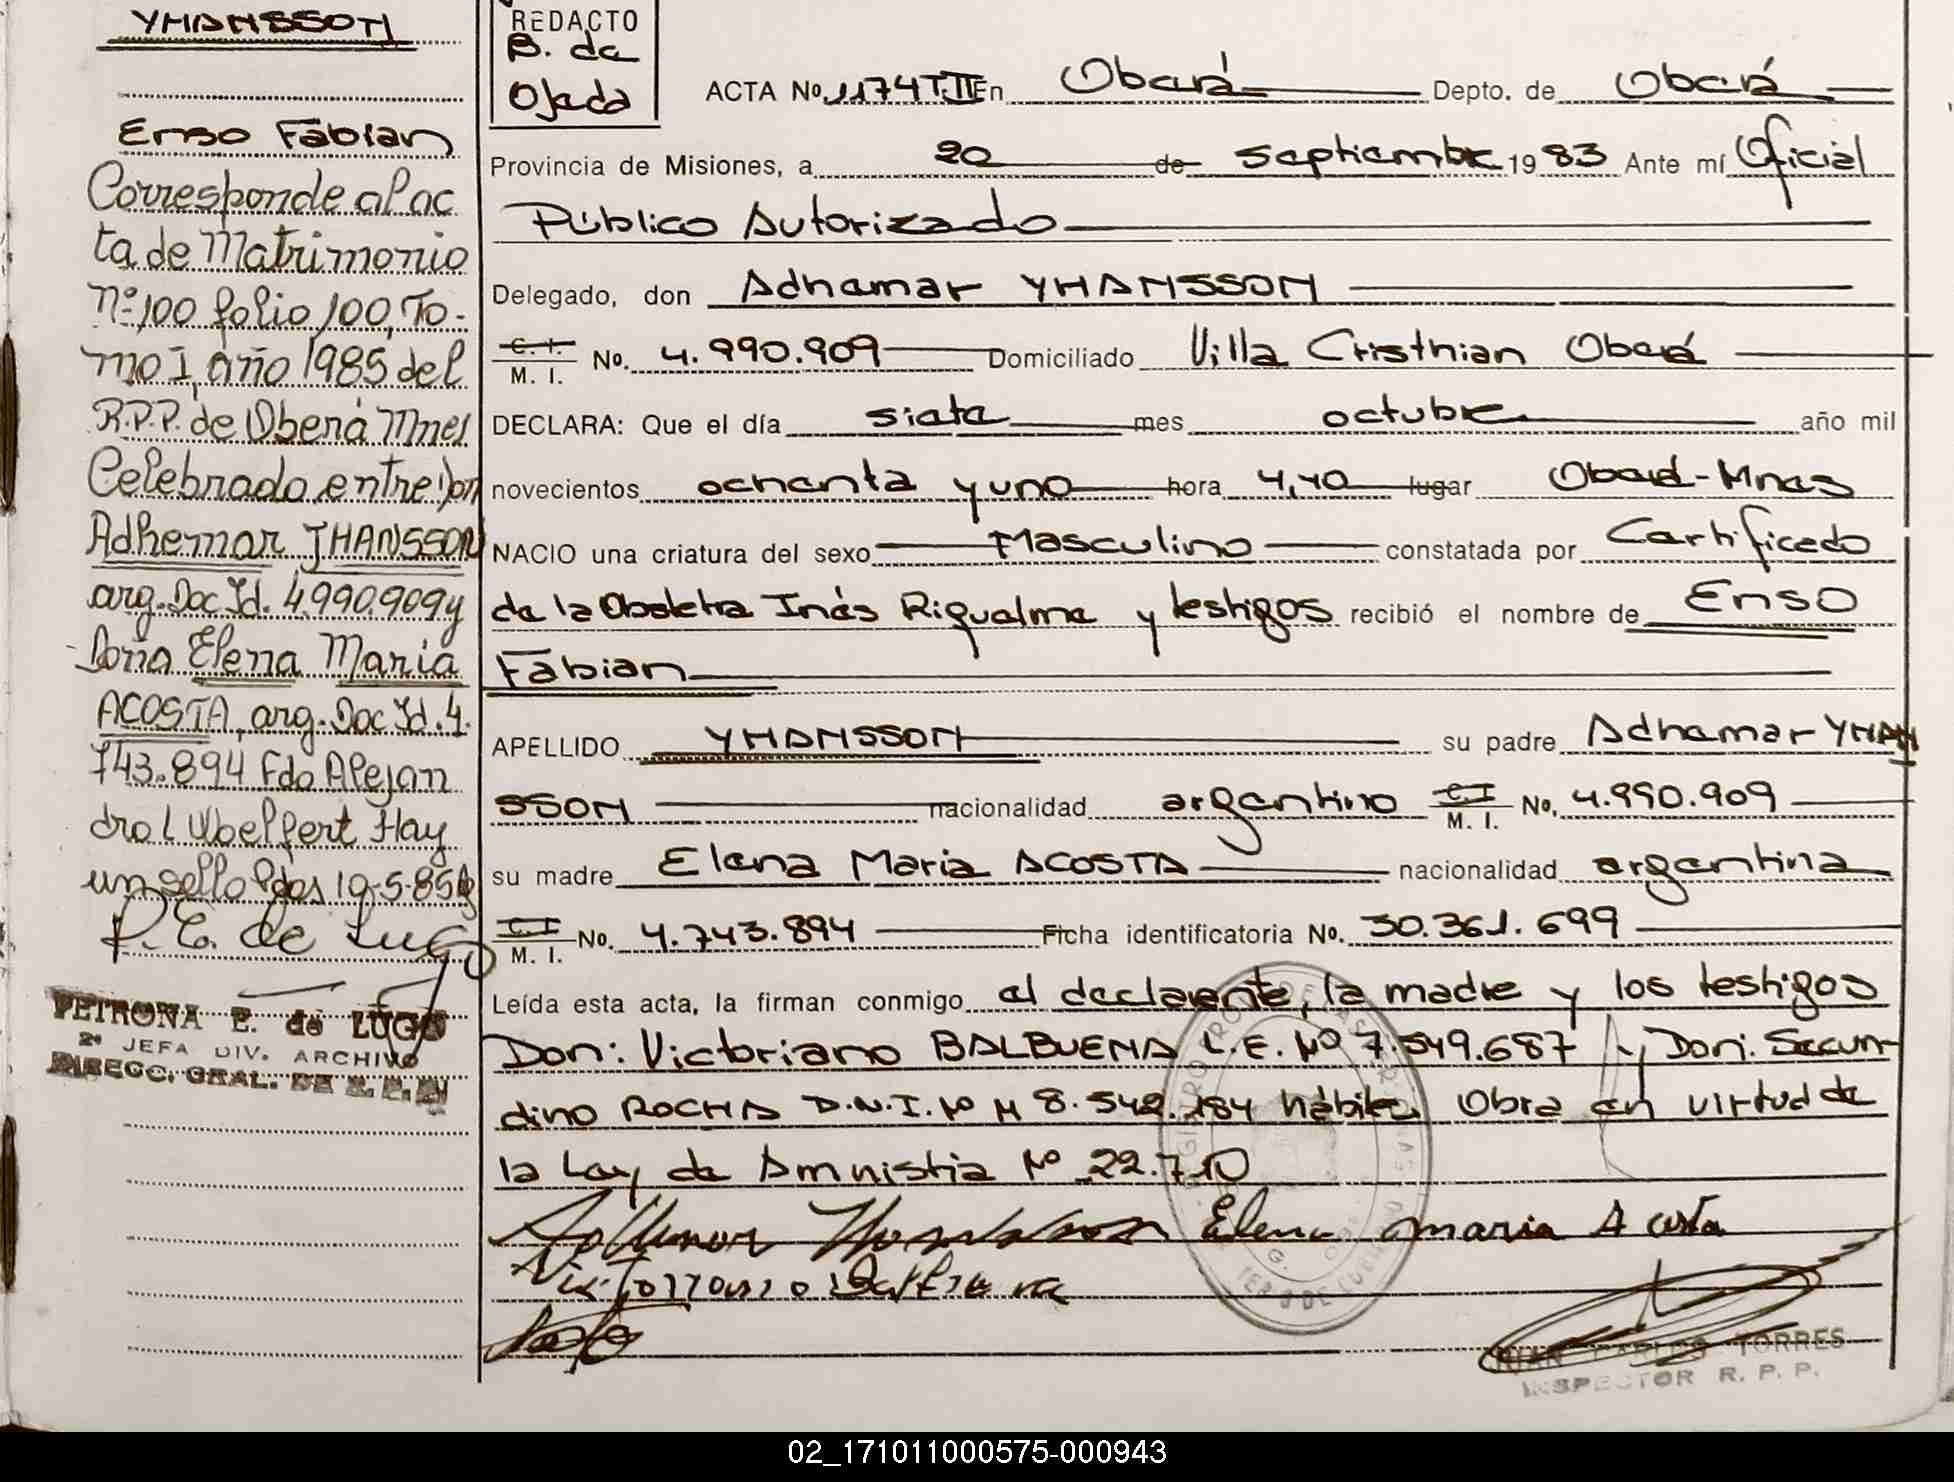 YHANSSON
Enso Fabian
Corresponde al ac
ta de Matrimonio
Nº 100 folio 100, To-
mo I, año 1985 del
R.P.P. de Oberá Mnes
Celebrado entre Don
Adhemar JHANSSON
arg. Doc Id. 4.990.909 y
Doña Elena Maria
ACOSTA, arg. Doc Id. 4.
743.894 Fdo Alejan
dro L Woelfert Hay
un sello Pdas 19-5-85
P. E. de Lugo
PETRONA E. de LUGO
2ª JEFA DIV. ARCHIVO
DIRECC. GRAL. DE R.P.P.
REDACTO
B. de
Ojeda
ACTA No. 1174 T.II En Oberá Depto. de Oberá
Provincia de Misiones, a 20 de septiembre 1983 Ante mí Oficial
Público Autorizado
Delegado, don Adhemar YHANSSON
C. I. M. I. No. 4.990.909 Domiciliado Villa Cristhian Oberá
DECLARA: Que el día siete mes octubre año mil
novecientos ochenta y uno hora 4,40 lugar Oberá-Mnes
NACIO una criatura del sexo Masculino constatada por Certificado
de la Obstetra Inés Riquelme y testigos recibió el nombre de Enso
Fabian
APELLIDO YHANSSON su padre Adhemar YHAN
SSON nacionalidad argentino C.I M. I. No. 4.990.909
su madre Elena Maria ACOSTA nacionalidad argentina
C.I M. I. No. 4.743.894 Ficha identificatoria No. 30.361.699
Leída esta acta, la firman conmigo el declarente, la madre y los testigos
Don: Victoriano BALBUENA L.E. Nº 7.549.687 y Don: Secun-
dino ROCHA D.N.I. Nº M 8.542.184 hábiles Obra en virtud de
la Ley de Amnistia Nº 22.710
Elena maria Acosta
Victoriano Balbuena
JUAN CARLOS TORRES
INSPECTOR R. P. P.
02_171011000575-000943